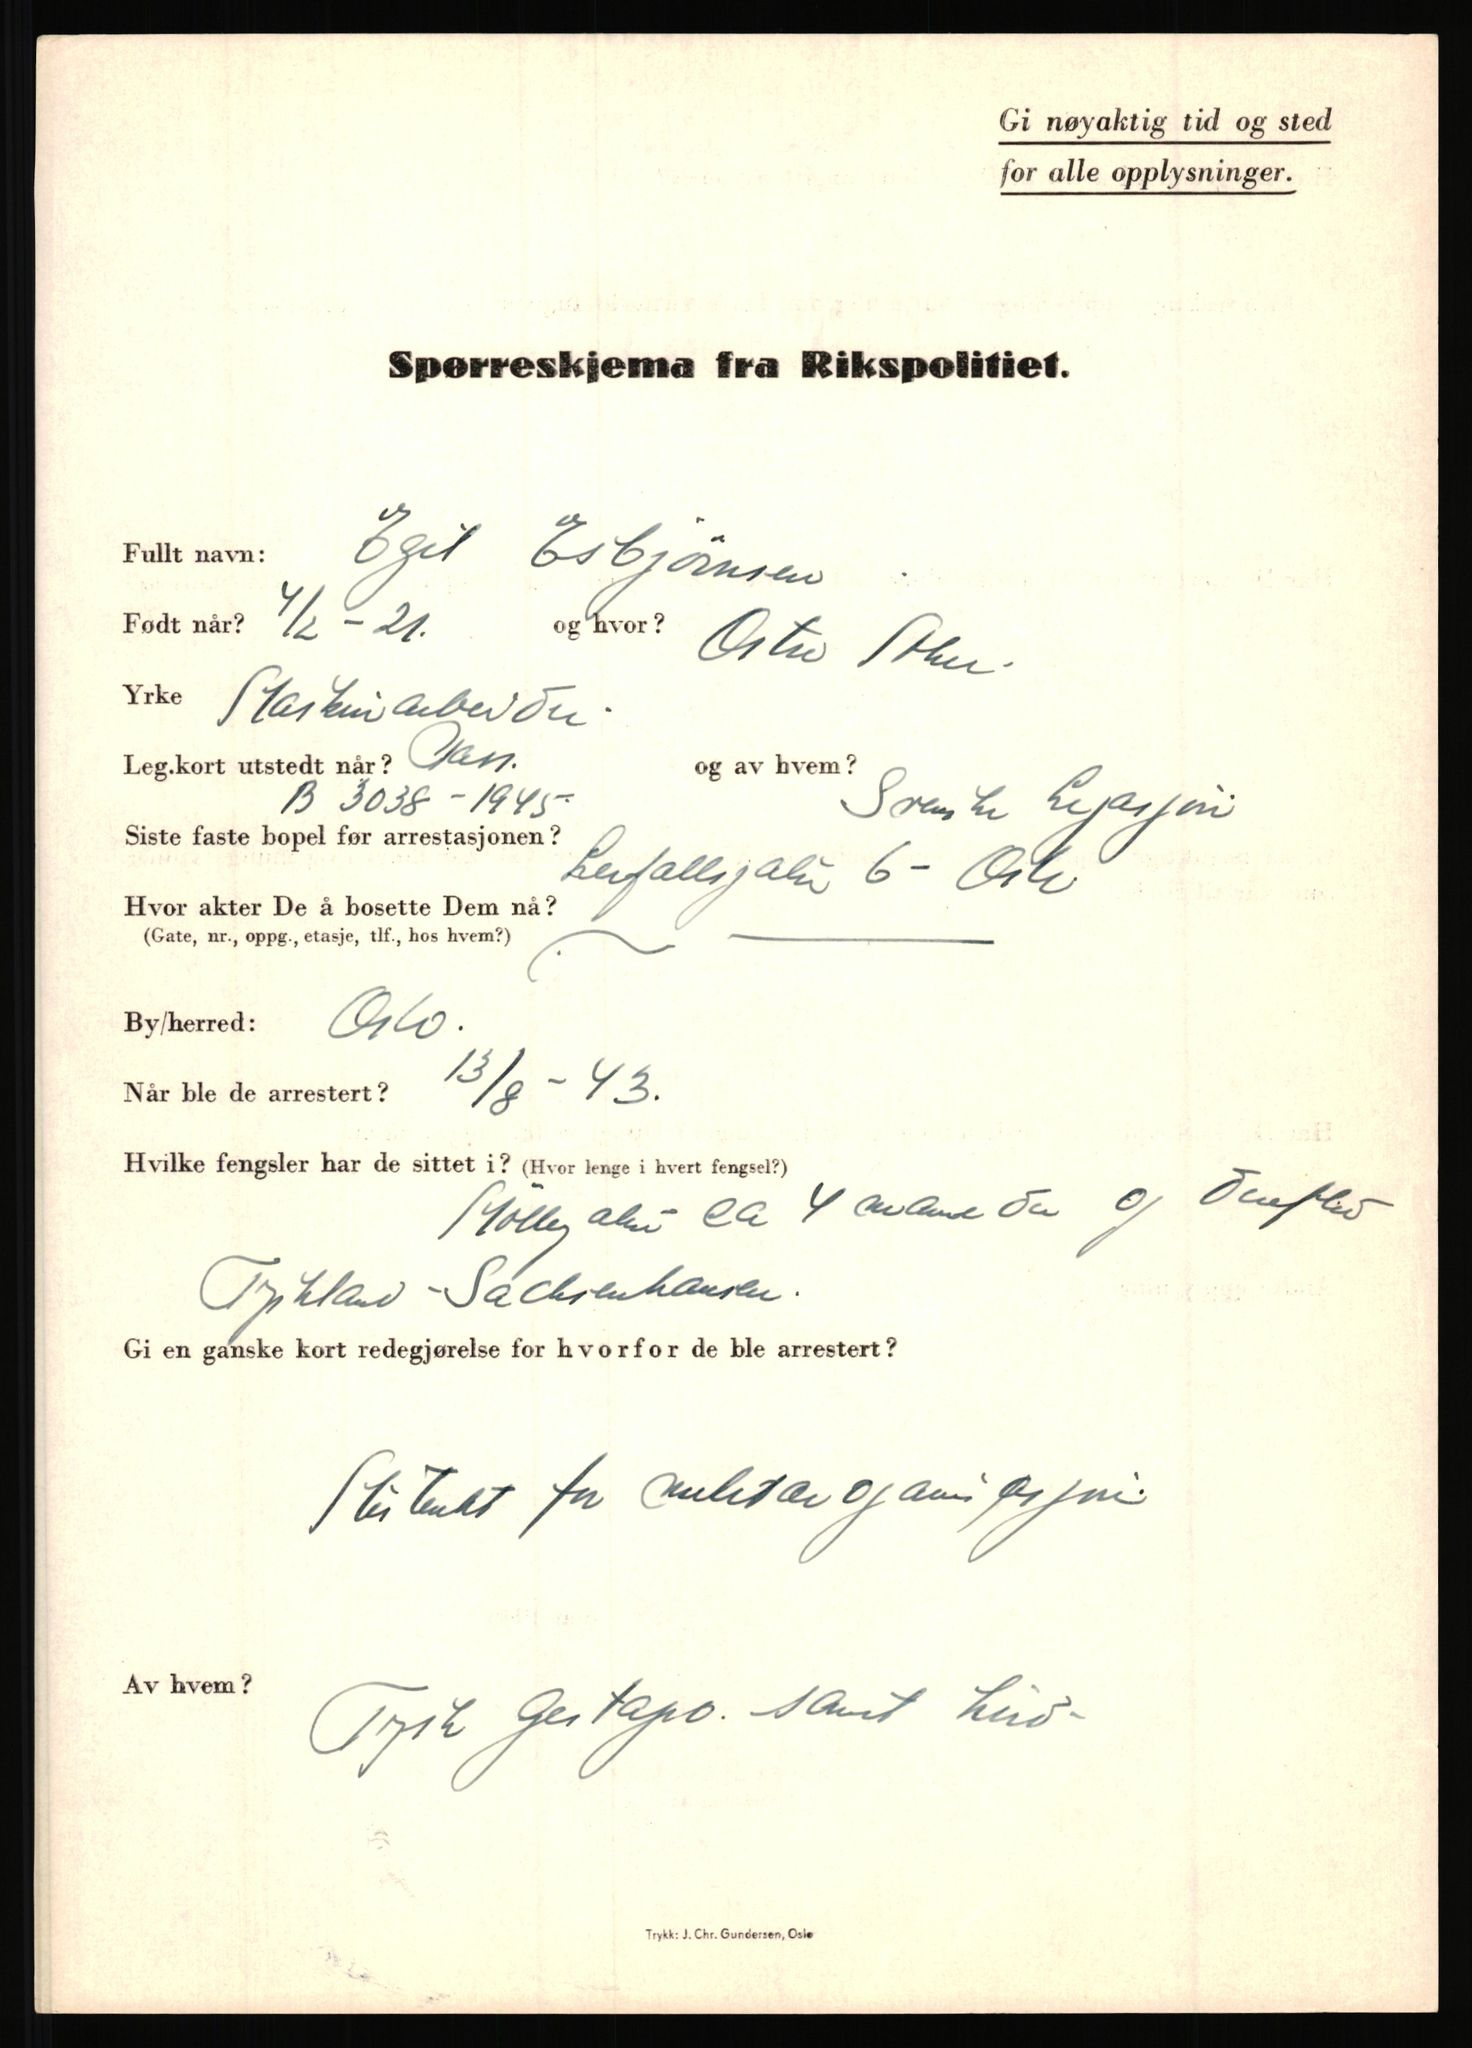 Gi nøyaktig tid og sted
for alle opplysninger.
Spørreskjema fra Rikspolitiet.
Fullt navn: Egil Esbjörnsen
Født når? 4/2 - 21. og hvor? Østre Aker.
Yrke Maskinarbeider.
Leg.kort utstedt når? Pass. og av hvem?
B 3038 - 1945- Svenske Legasjon
Siste faste bopel før arrestasjonen?
6 - Oslo
Hvor akter De å bosette Dem nå?
(Gate, nr., oppg., etasje, tlf., hos hvem?)
By/herred: Oslo.
Når ble de arrestert? 13/8 - 43.
Hvilke fengsler har de sittet i? (Hvor lenge i hvert fengsel?)
Möllergaten ca 4 måneder og
Tyskland - Sachsenhausen.
Gi en ganske kort redegjørelse for hvorfor de ble arrestert?
Mistenkt for militærorganisasjon
Av hvem? Tysk Gestapo. samt hird-
Trykk: J. Chr. Gundersen, Oslo